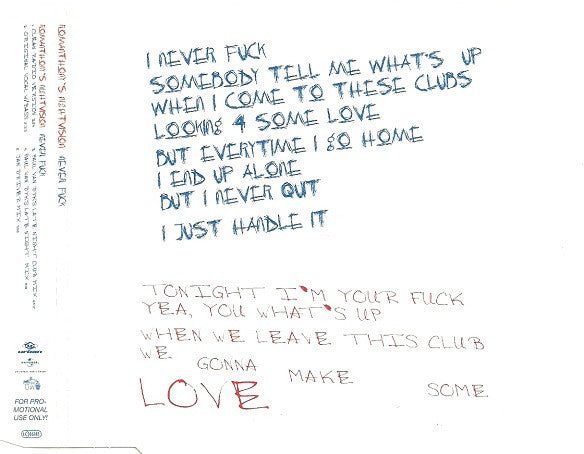 I NEVER FUCK
SOMEBODY TELL ME WHAT'S UP
WHEN I COME TO THESE CLUBS
LOOKING 4 SOME LOVE
BUT EVERYTIME I GO HOME
I END UP ALONE
BUT I NEVER QUIT
I JUST HANDLE IT
TONIGHT I'M YOUR FUCK
YEA, YOU WHAT'S UP
WHEN WE LEAVE THIS CLUB
WE GONNA MAKE SOME
LOVE
ROMANTHONY'S NIGHTVISION NEVER FUCK
ROMANTHONY'S NIGHTVISION NEVER FUCK
urban
UNIVERSAL
FOR PRO-
MOTIONAL
USE ONLY!